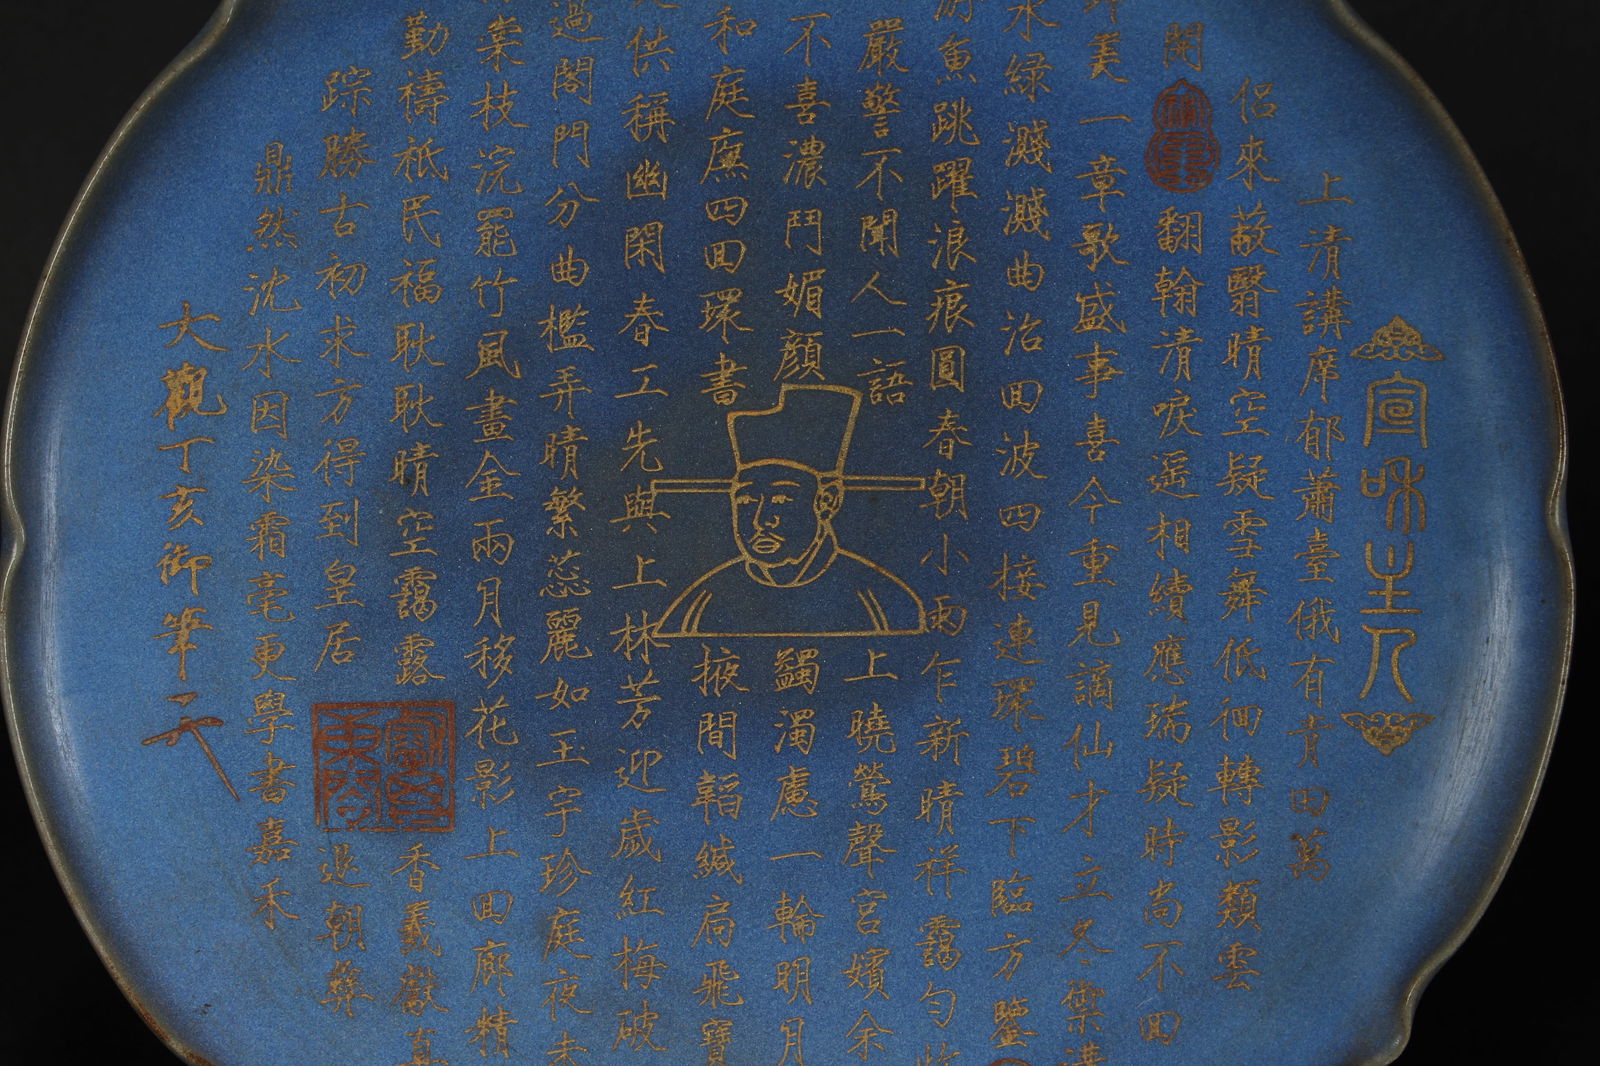 宣和主人
上清講席郁蕭臺俄有青田萬
侶來蔽翳晴空疑雪舞低徊轉影類雲
開 翻翰清唳遥相續應瑞疑時尚不回
美一章歌盛事喜今重見謫仙才立冬
水綠濺濺曲沼回波四接連環碧下臨方鑒
游魚跳躍浪痕圓春朝小雨乍新晴祥靄勻
嚴警不聞人一語上曉鶯聲宮嬪余
不喜濃鬥媚顏蠲濁慮一輪明月
和庭廡四回環書掖間韜緘扃飛寶
供稱幽閑春工先與上林芳迎歲紅梅破
過閣門分曲檻弄晴繁蕊麗如玉宇珍庭夜未
棠枝浣罷竹風畫金兩月移花影上回廊精
勤禱祇民福耿耿晴空靄露香羲獻真
踪勝古初求方得到皇居退朝彝
鼎然沈水因染霜毫更學書嘉禾
大觀丁亥御筆